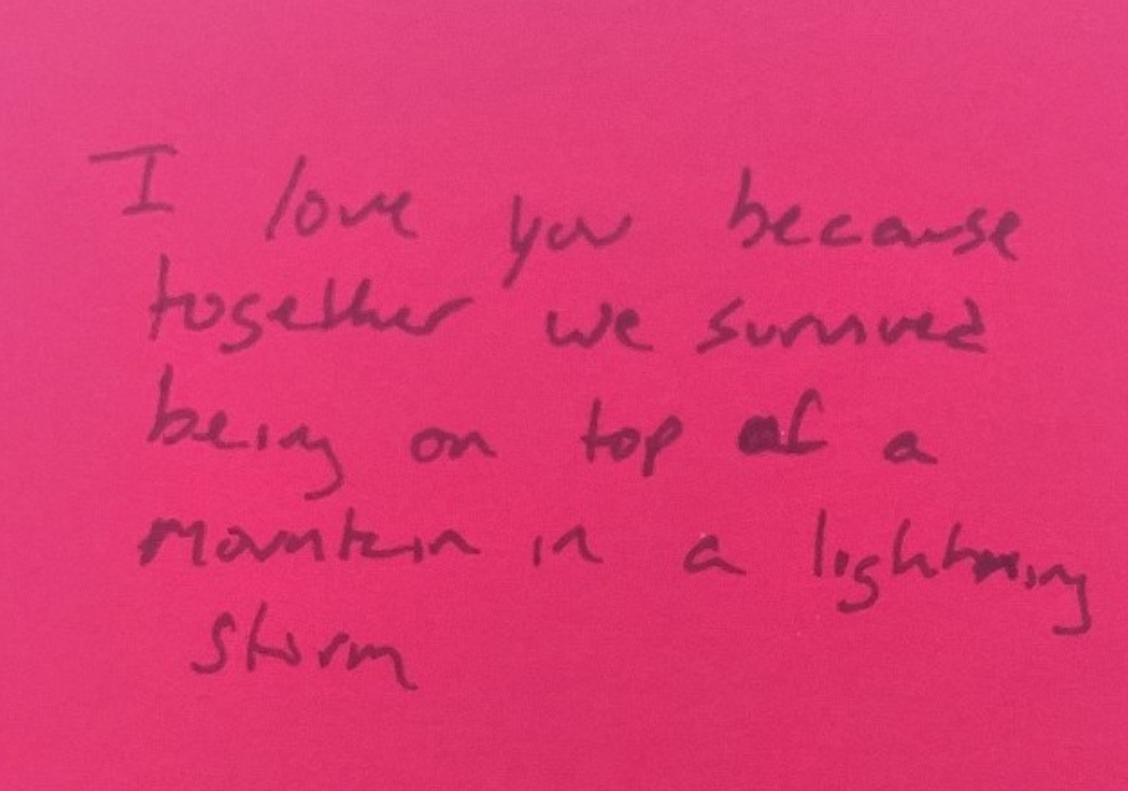 I love you because
together we survived
being on top of a
mountain in a lightning
storm